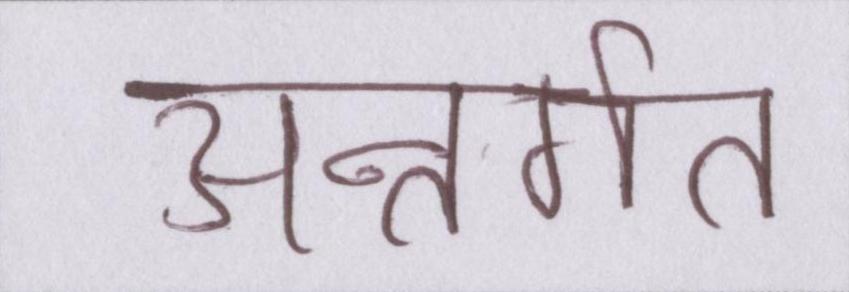 अन्तर्गत